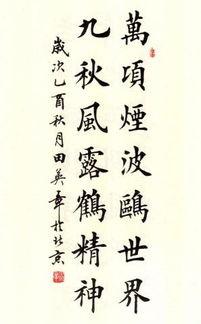 萬項煙波鷗世界
九秋風露鶴精神
歲次乙酉秋月田英章於北京